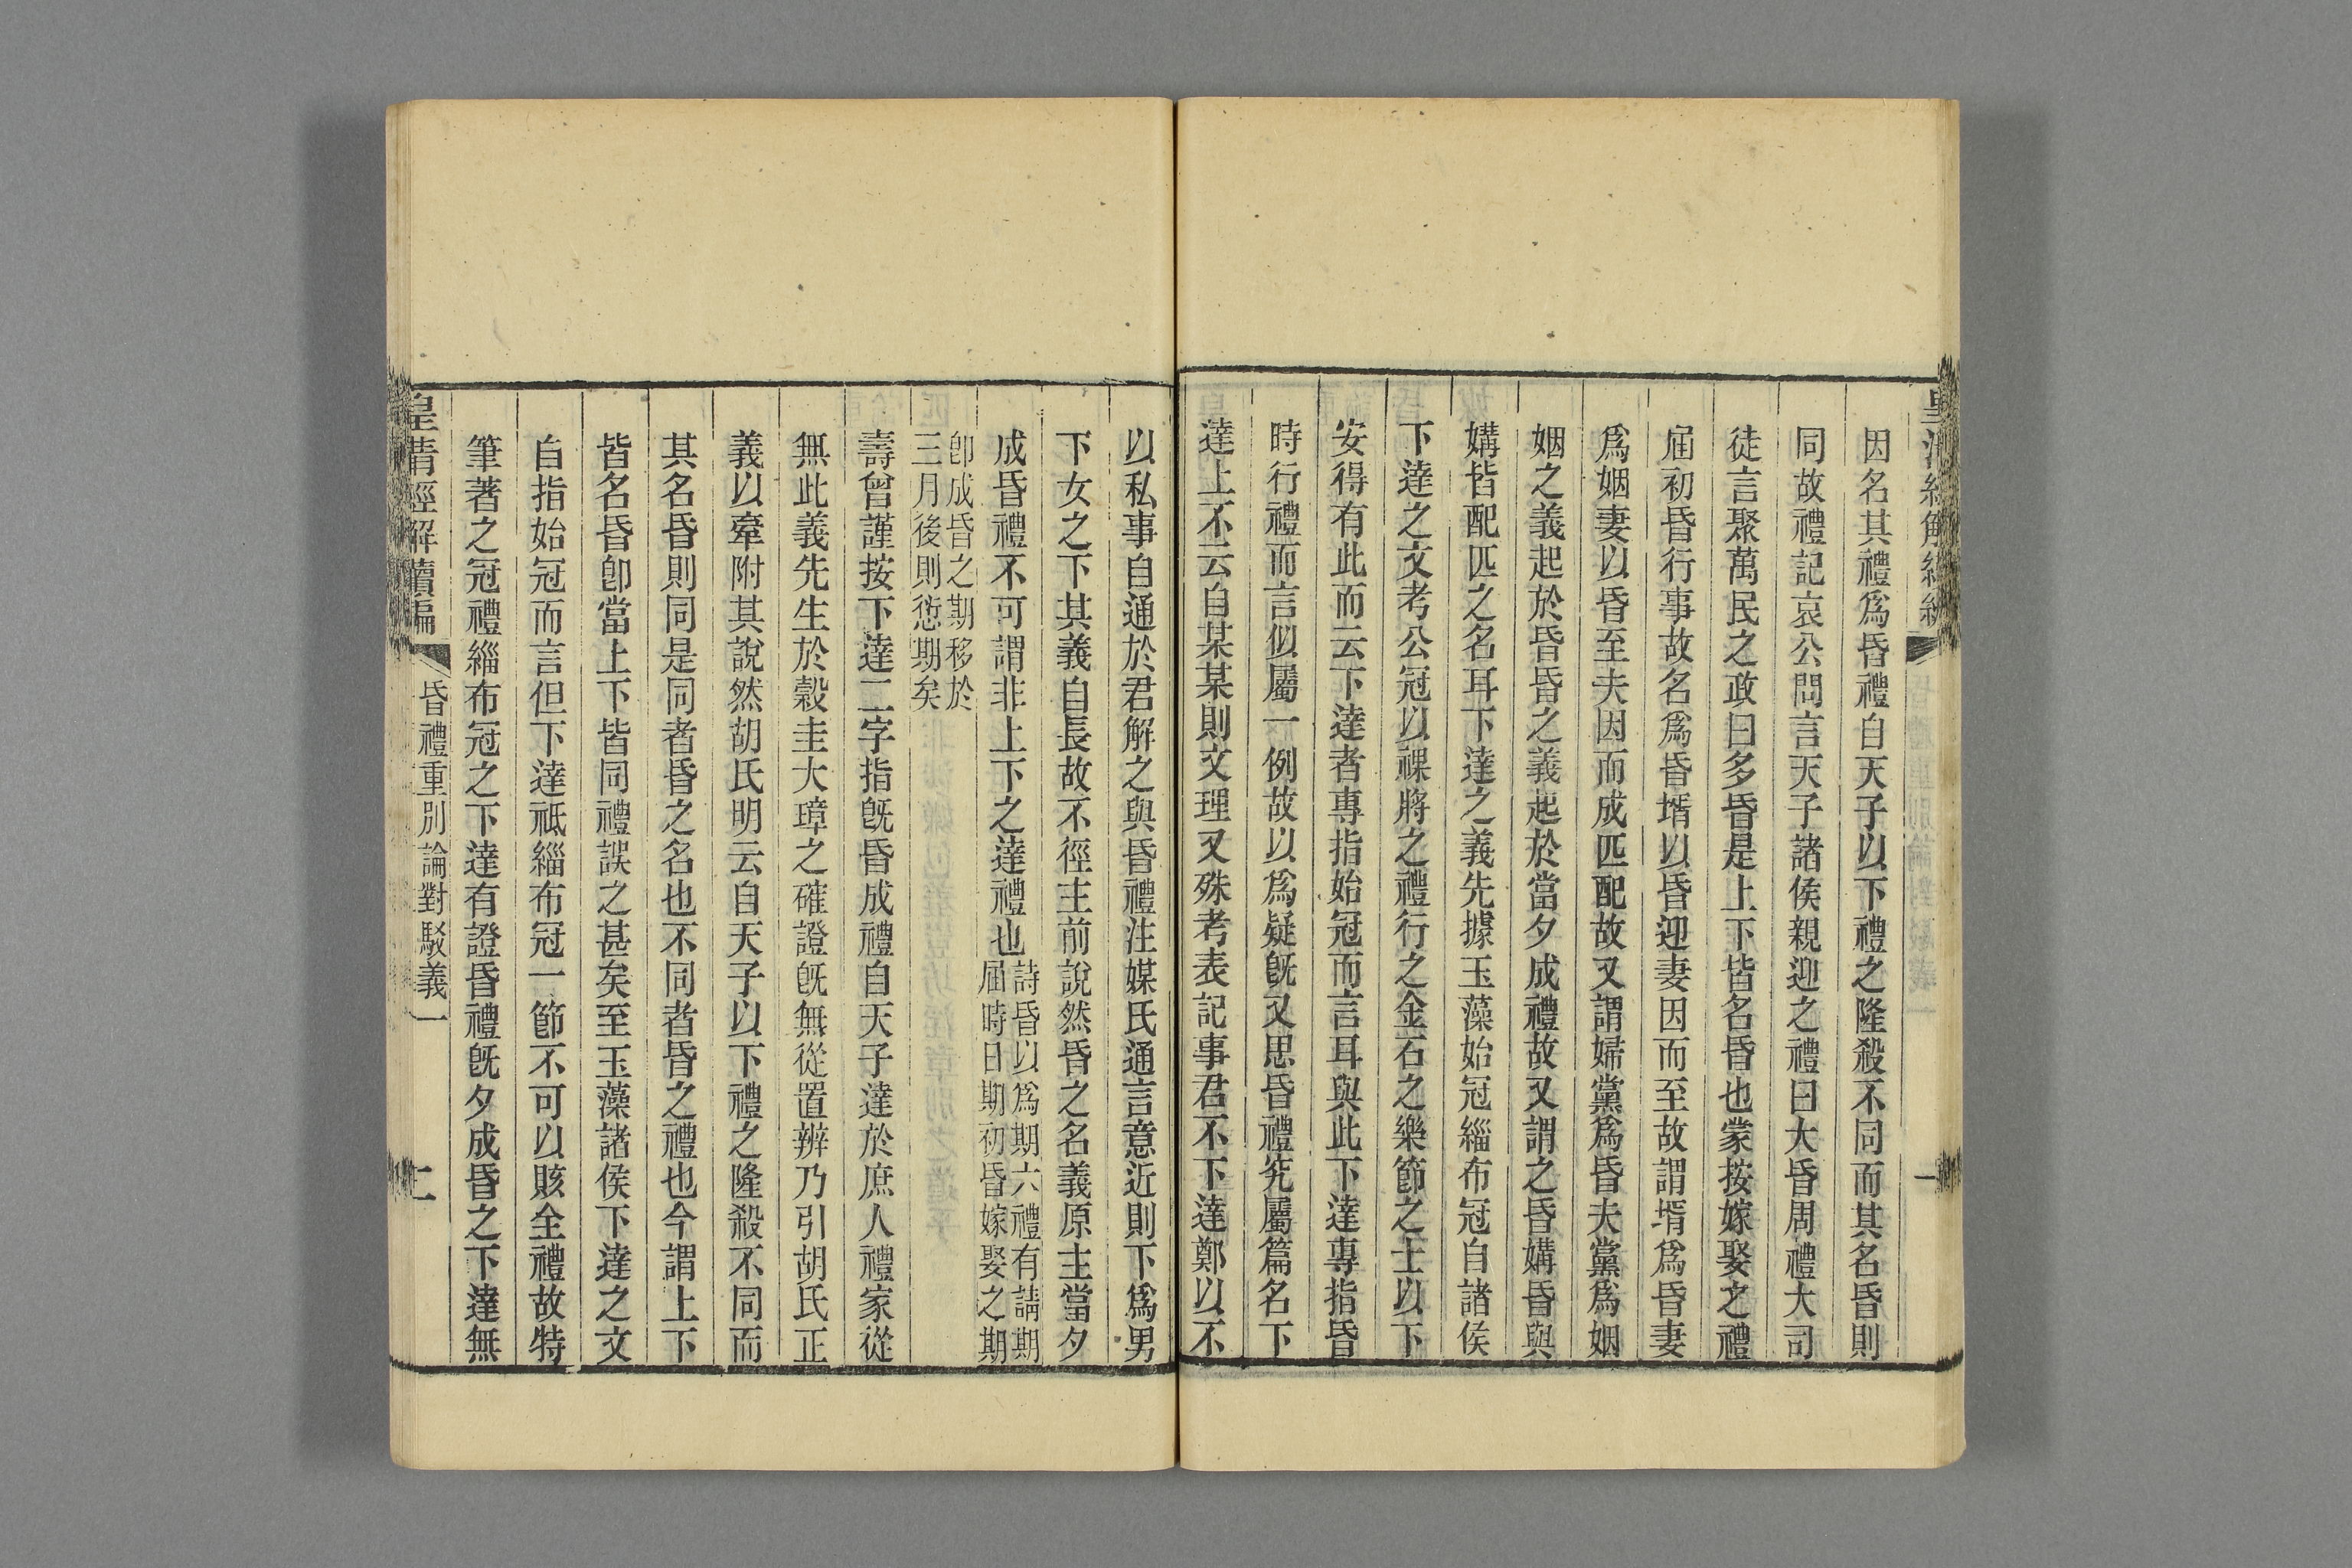 因名其禮爲昏禮自天子以下禮之隆殺不同而其名昏則
同故禮記哀公問言天子諸侯親迎之禮曰大昏周禮大司
徒言聚萬民之政曰多昏是上下皆名昏也蒙按嫁娶之禮
屆初昏行事故名爲昏壻以昏迎妻因而至故謂壻爲昏妻
爲姻妻以昏至夫因而成匹配故又謂婦黨爲昏夫黨爲姻
姻之義起於昏昏之義起於當夕成禮故又謂之昏媾昏與
媾皆配匹之名耳下達之義先據玉藻始冠緇布冠自諸侯
下達之文考公冠以祼將之禮行之金石之樂節之士以下
安得有此而云下達者專指始冠而言耳與此下達專指昏
時行禮而言似屬一例故以爲疑旣又思昏禮究屬篇名下
達上不云自某某則文理又殊考表記事君不下達鄭以不
以私事自通於君解之與昏禮注媒氏通言意近則下爲男
下女之下其義自長故不徑主前說然昏之名義原主當夕
成昏禮不可謂非上下之達禮也詩昏以爲期六禮有請期
屆時日期初昏嫁娶之期
卽成昏之期移於
三月後則愆期矣
壽曾謹按下達二字指旣昏成禮自天子達於庶人禮家從
無此義先生於穀圭大璋之確證旣無從置辨乃引胡氏正
義以牽附其說然胡氏明云自天子以下禮之隆殺不同而
其名昏則同是同者昏之名也不同者昏之禮也今謂上下
皆名昏卽當上下皆同禮誤之甚矣至玉藻諸侯下達之文
自指始冠而言但下達祗緇布冠一節不可以賅全禮故特
筆著之冠禮緇布冠之下達有證昏禮旣夕成昏之下達無
皇清經解續編
昏禮重別論對駁義一
二